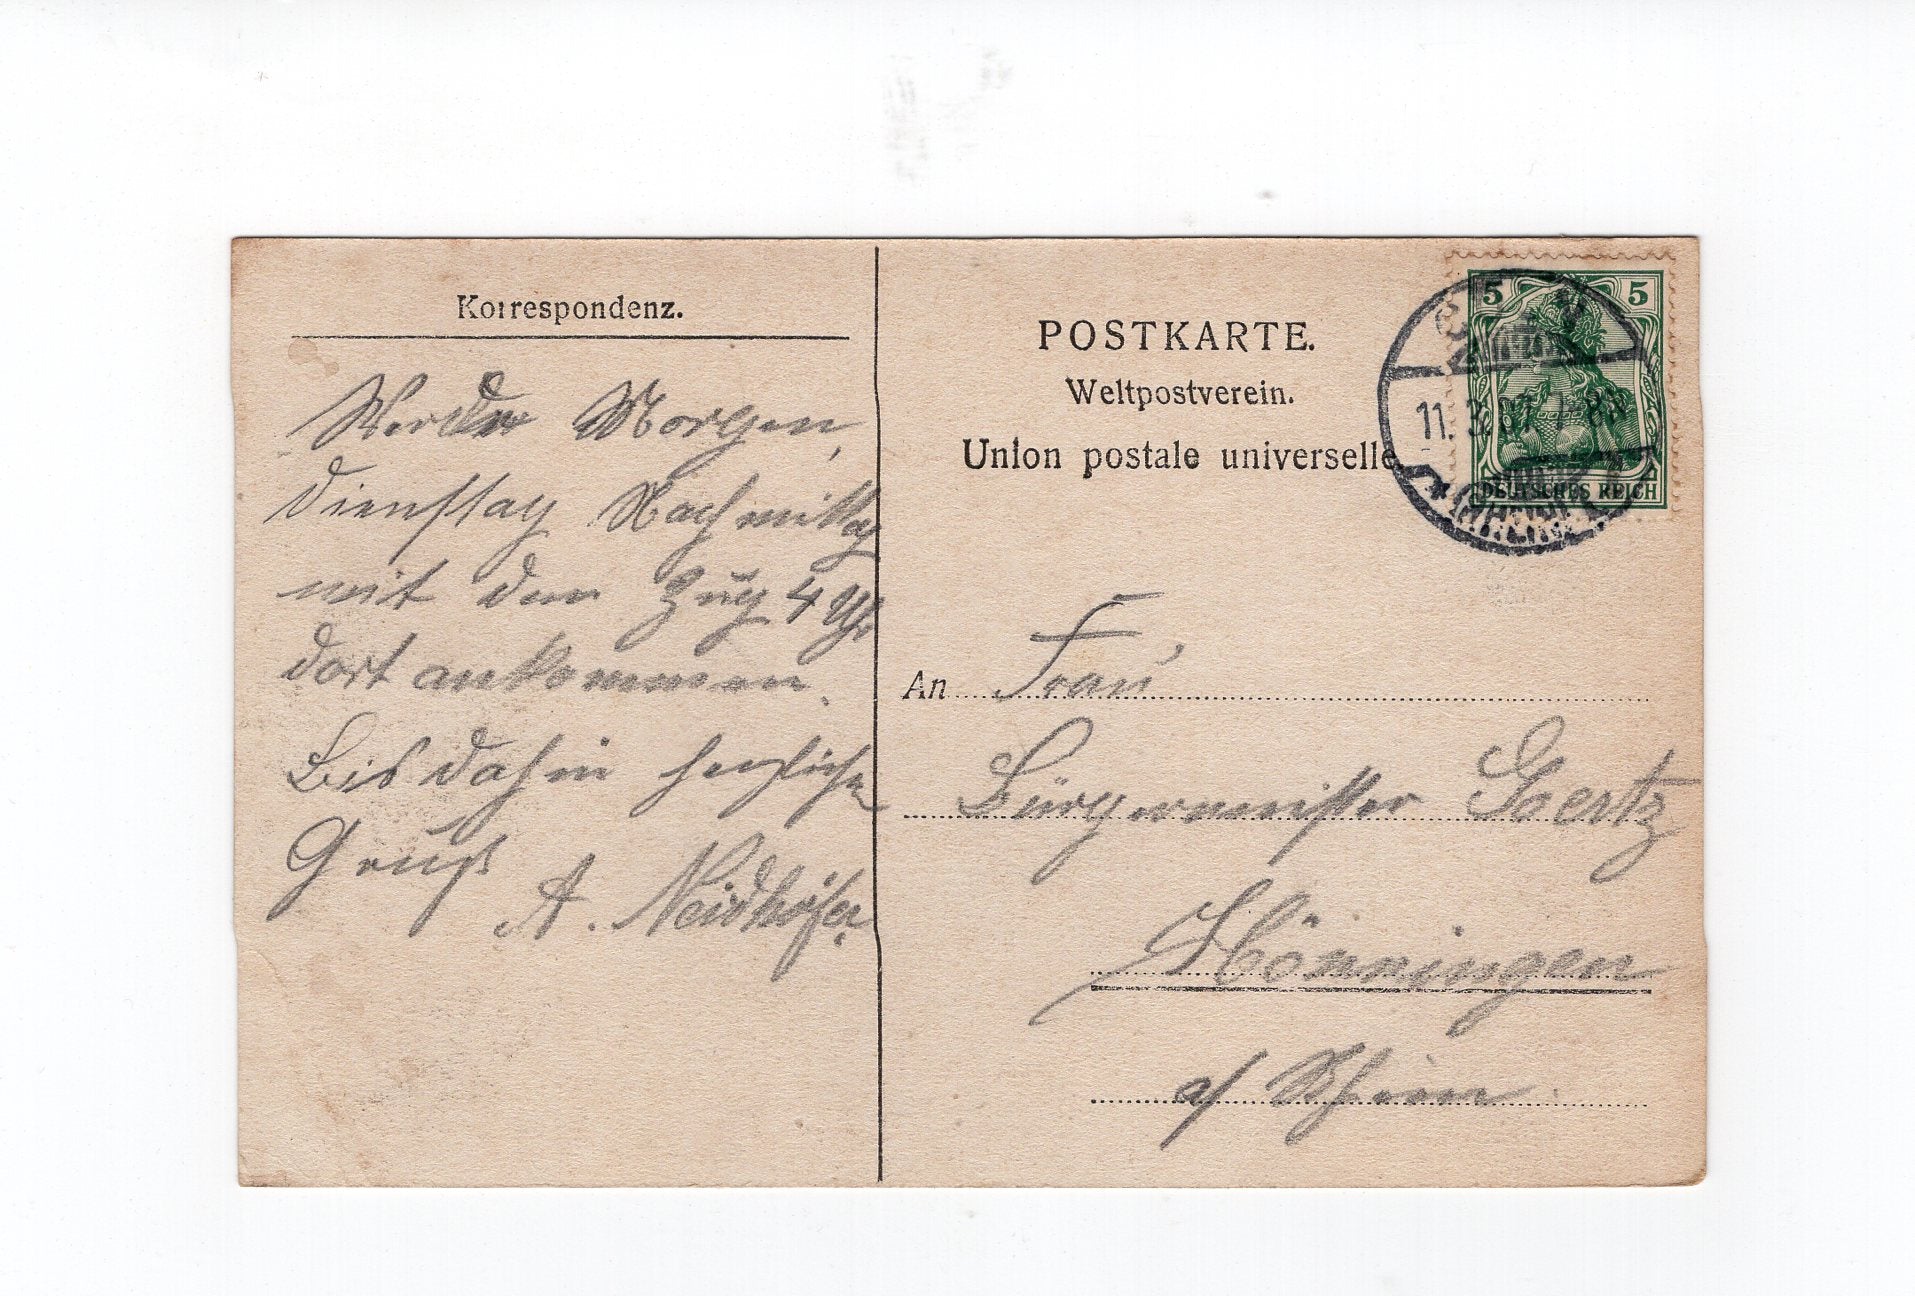 Korrespondenz.
Werde Morgen,
Dienstag Nachmittag
mit dem Zug 4 Uhr
dort ankommen.
Bis dahin herzliche
Gruß
A. Neidhöfer.
POSTKARTE.
Weltpostverein.
Union postale universelle
5 5
11.3.07 8
DEUTSCHES REICH
An Frau
Bürgermeister Goertz
Hönningen
a/ Rhein.